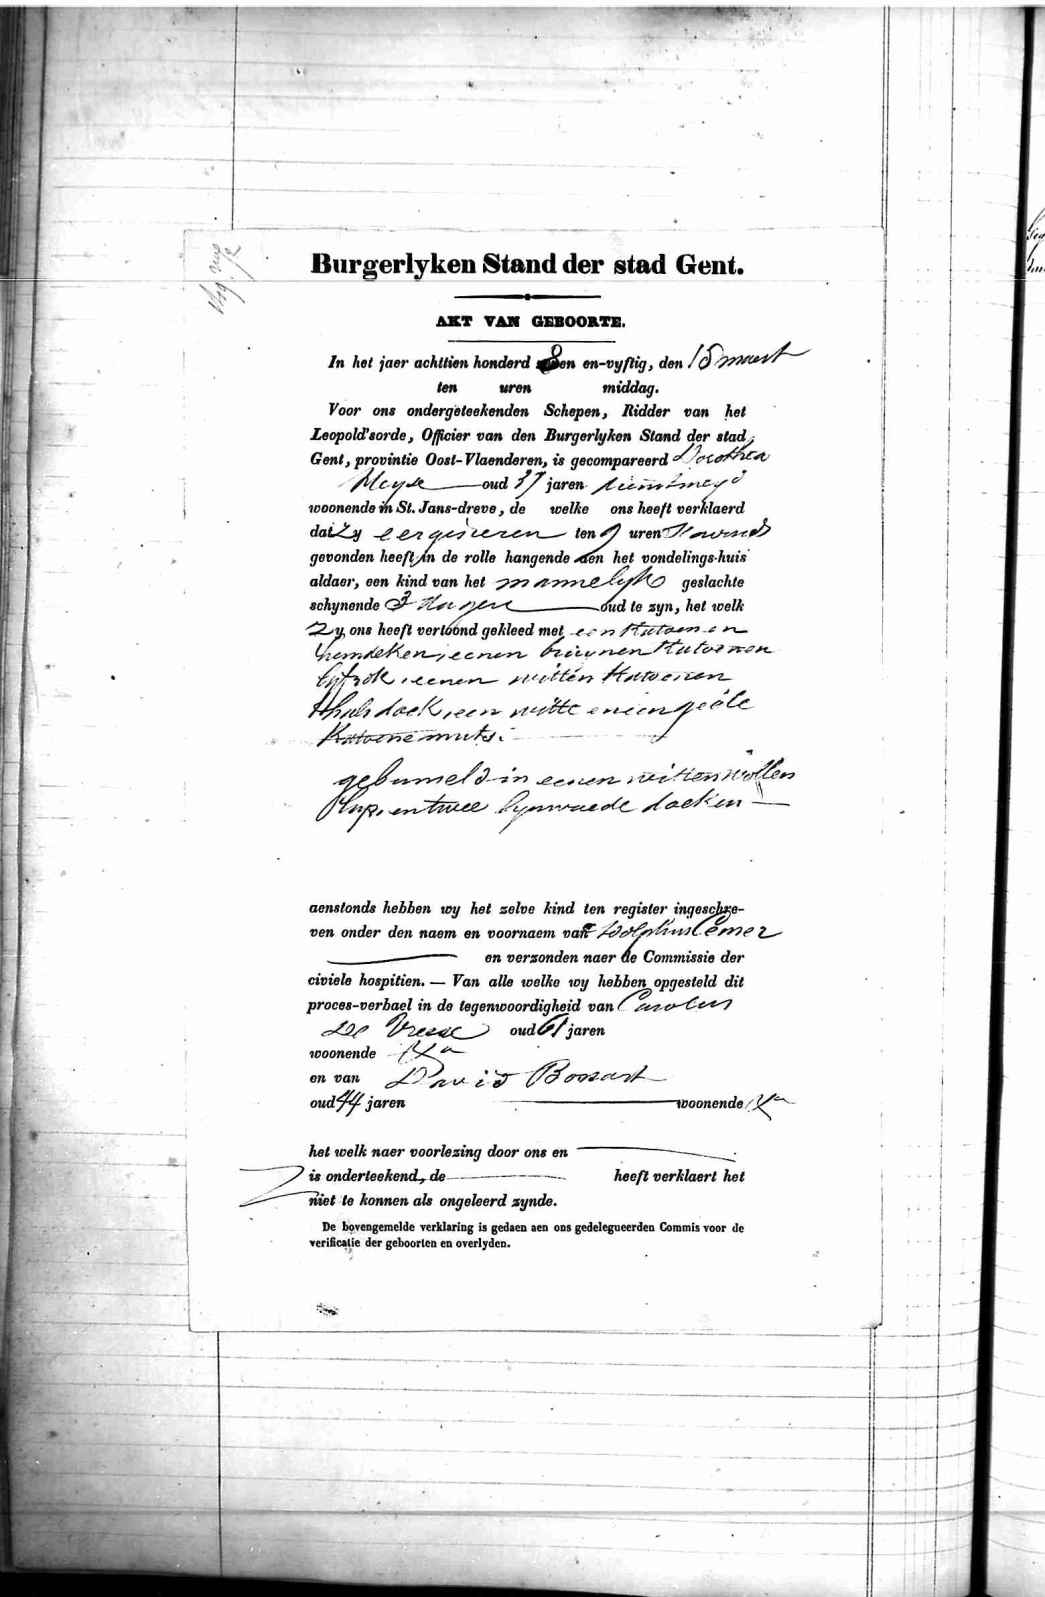 Burgerlyken Stand der stad Gent.
AKT VAN GEBOORTE.
In het jaer achttien honderd 8en en-vyftig, den 15 maert
ten uren middag.
Voor ons ondergeteekenden Schepen, Ridder van het
Leopold'sorde, Officier van den Burgerlyken Stand der stad
Gent, provintie Oost-Vlaenderen, is gecompareerd Dorothea
Meyse oud 37 jaren dienstmeyd
woonende in St. Jans-dreve, de welke ons heeft verklaerd
dat zy eergisteren ten 9 uren 's avonds
gevonden heeft in de rolle hangende aen het vondelings-huis
aldaer, een kind van het mannelyk geslachte
schynende 3 dagen oud te zyn, het welk
zy ons heeft vertoond gekleed met een katoenen
hemdeken, eenen bruynen katoenen
lyfrok, eenen witten katoenen
halsdoek, een witte en een
katoene muts.
gebumeld in eenen witten wollen
en twee lynwaede doeken
aenstonds hebben wy het zelve kind ten register ingeschre-
ven onder den naem en voornaem van Adolphus Cemer
en verzonden naer de Commissie der
civiele hospitien. — Van alle welke wy hebben opgesteld dit
proces-verbael in de tegenwoordigheid van Carolus
De Vreese oud 61 jaren
woonende
en van David Bossaert
oud 44 jaren woonende
het welk naer voorlezing door ons en
is onderteekend, de heeft verklaert het
niet te konnen als ongeleerd zynde.
De bovengemelde verklaring is gedaen aen ons gedelegueerden Commis voor de
verificatie der geboorten en overlyden.